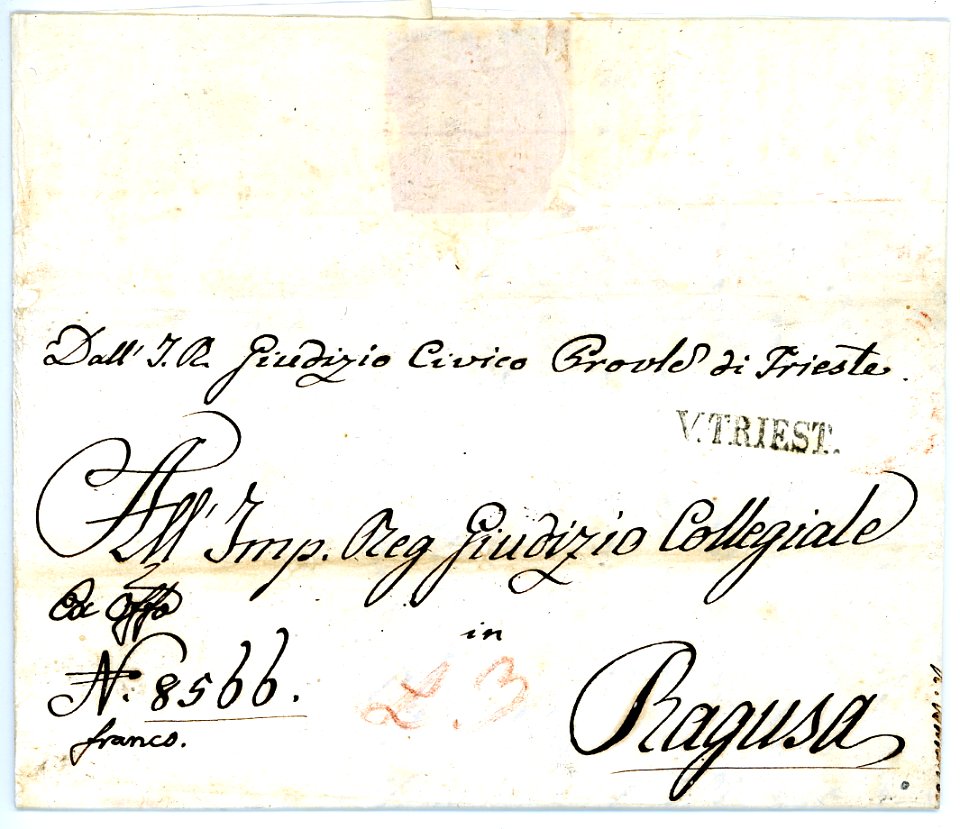 Dall' I. R. Giudizio Civico Provle di Trieste.
V. TRIEST.
All' Imp. Reg Giudizio Collegiale
Ex Offo
in
N. 8566.
franco.
Ragusa